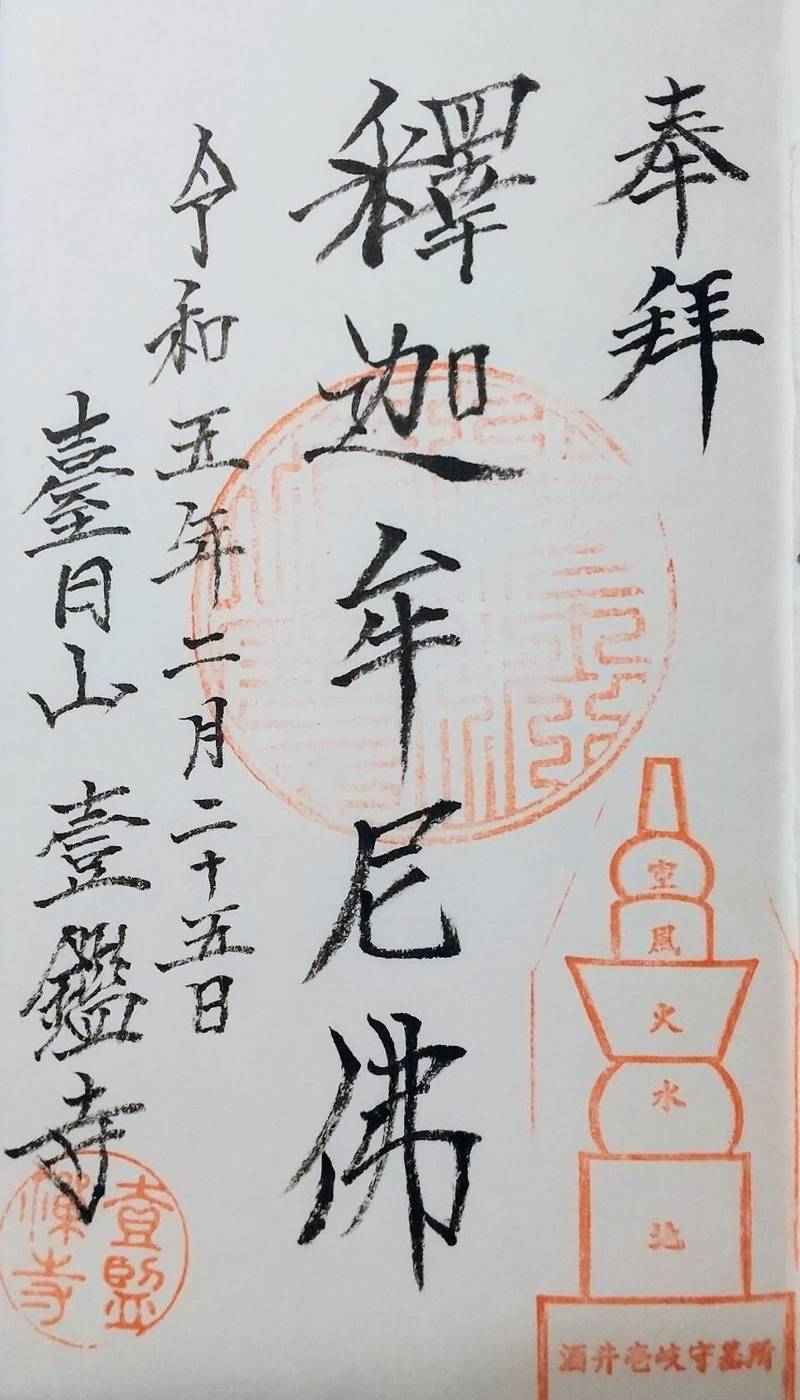 奉拜
釋迦牟尼佛
令和五年二月二十五日
臺日山 壹鑑寺
空
風
火
水
地
酒井壱岐守墓所
壹鑑
禪寺